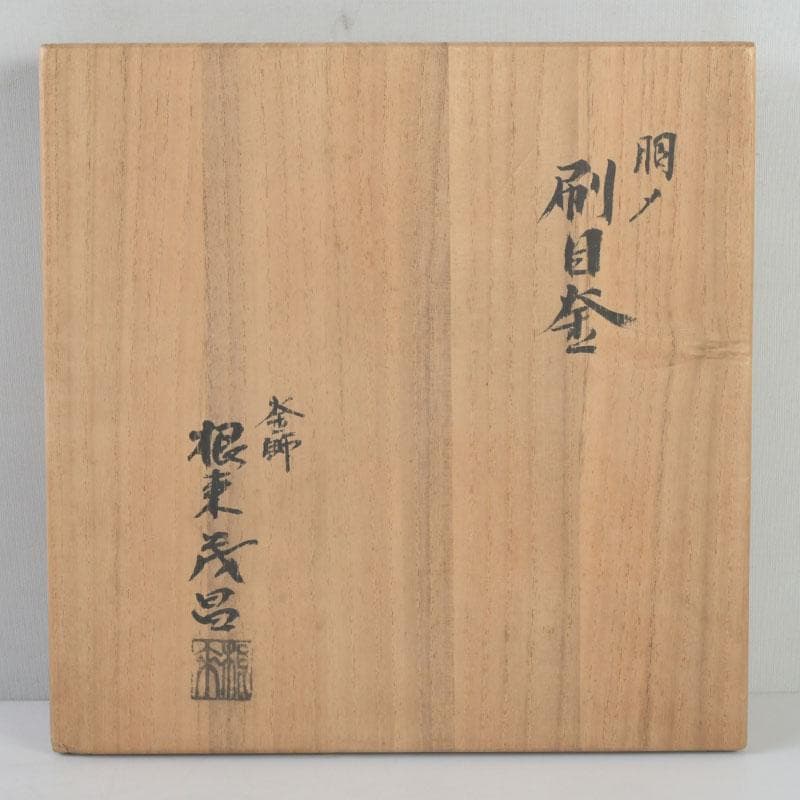 胴ノ
刷目釜
釜師
根来茂昌
根来